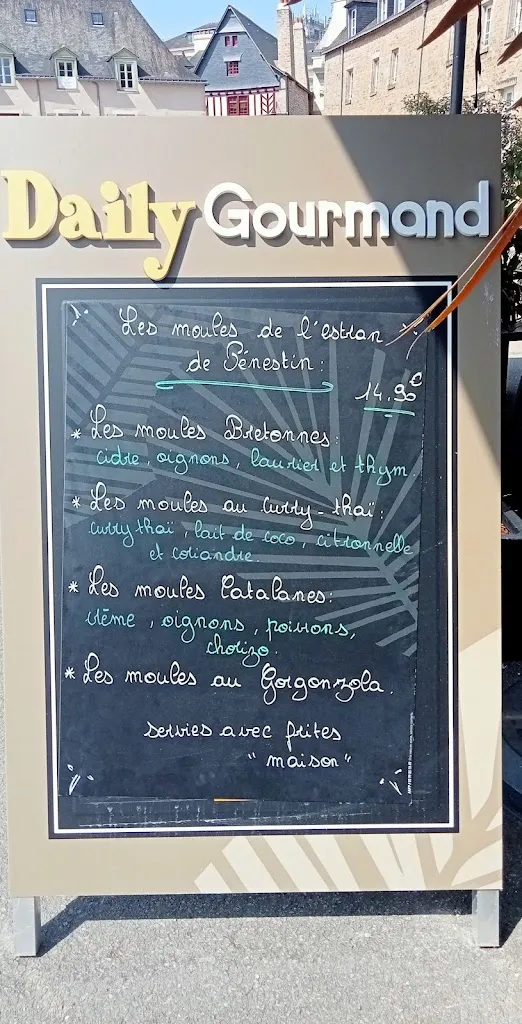 Daily Gourmand
Les moules de l'estran
de Pénestin:
14.90€
* Les moules Bretonnes:
cidre, oignons, laurier et thym
* Les moules au curry-thaï:
curry thaï, lait de coco, citronnelle
et coriandre.
* Les moules Catalanes:
crème, oignons, poivrons,
chorizo.
* Les moules au Gorgonzola.
servies avec frites
"maison"